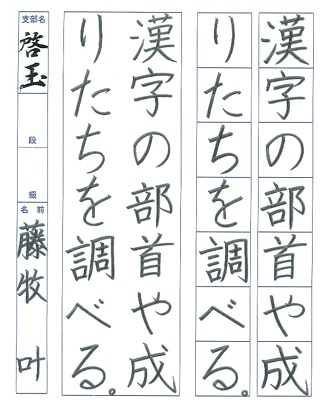 漢字の部首や成
りたちを調べる。
漢字の部首や成
りたちを調べる。
支部名
啓玉
段
級
名前
藤牧 叶